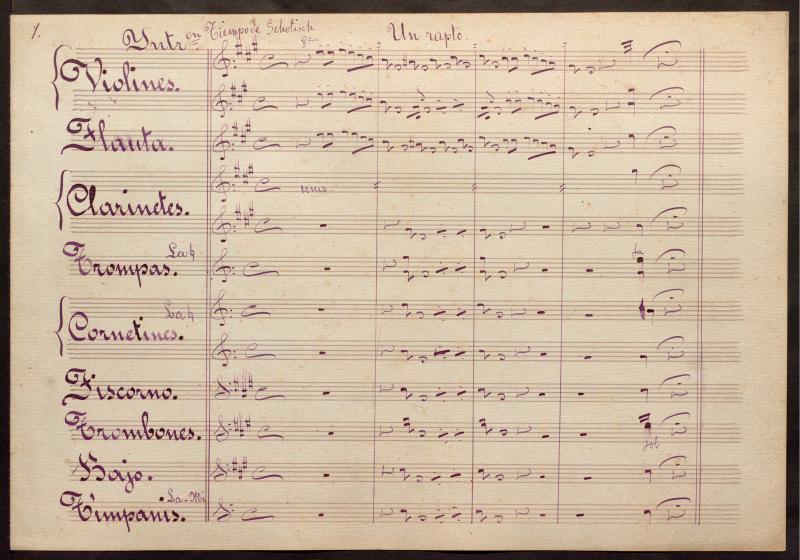 1.
Yntr.on Tiempo de Schotisch
Un rapto.
8a
Violines.
Flauta.
Clarinetes.
unis
Trompas. La♮
fa
Cornetines. La♮
Fiscorno.
Trombones.
sol
Bajo.
Timpanis. La-Mi